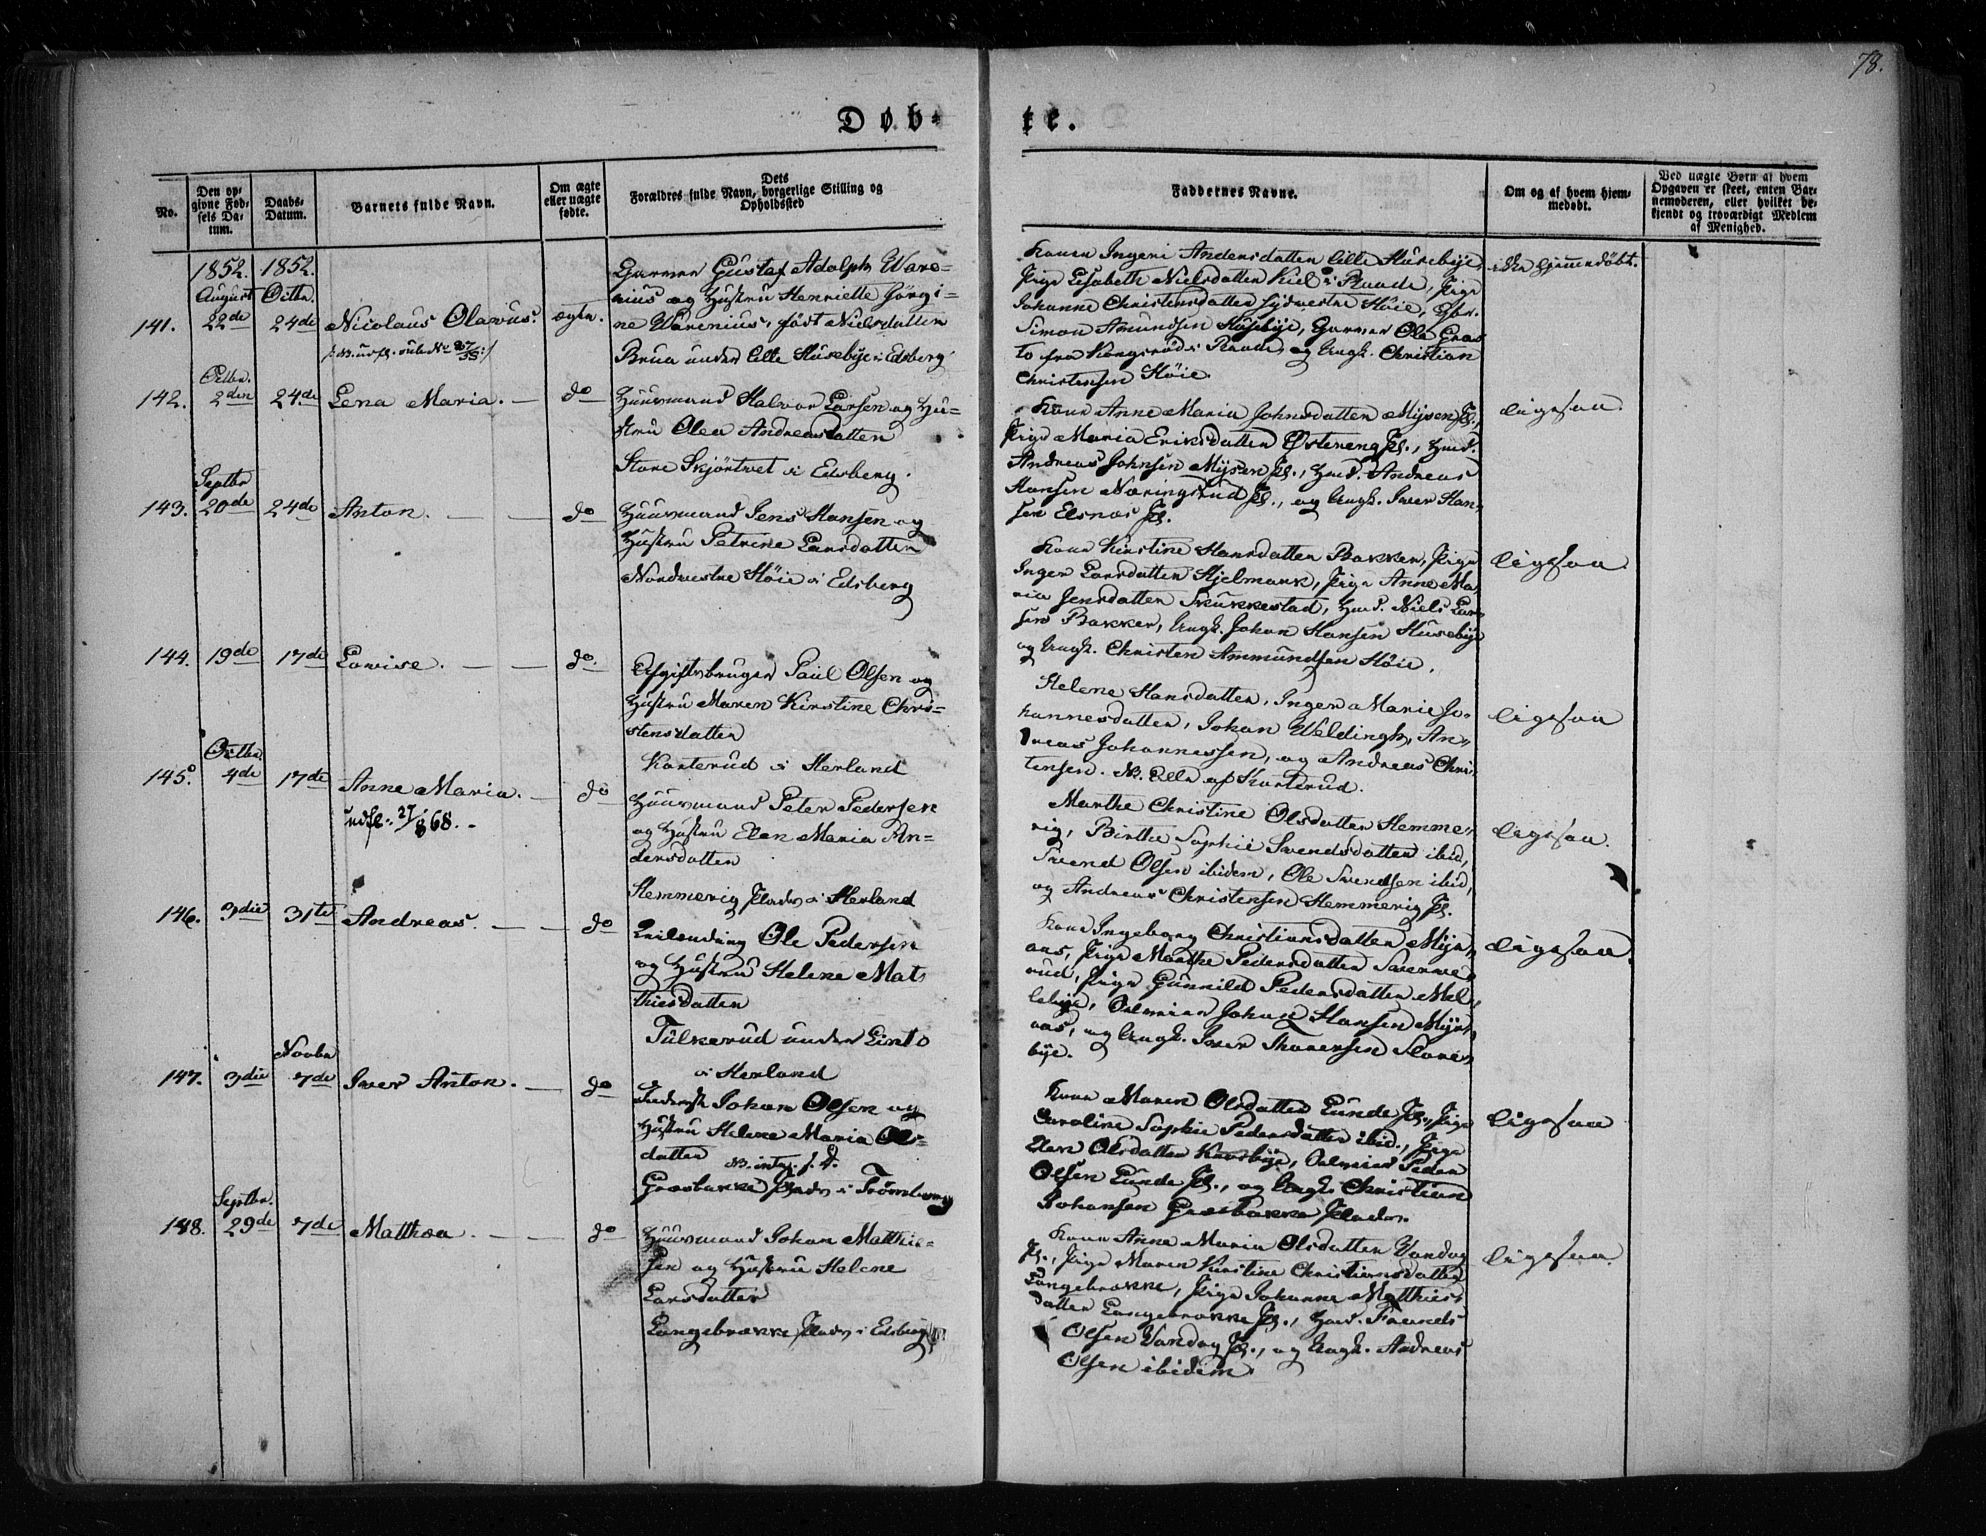 78.
Døb-
te.
No.
Den op-
givne Fød-
sels Da-
tum.
Daabs-
Datum.
Barnets fulde Navn.
Om ægte
eller uægte
fødte.
Dets
Forældres fulde Navn, borgerlige Stilling og
Opholdssted
Faddernes Navne.
Om og af hvem hjem-
medøbt.
Ved uægte Børn af hvem
Opgaven er skeet, enten Bar-
nemoderen, eller hvilket be-
kjendt og troværdigt Medlem
af Menighed.
1852. 1852.
August Octbr.
141. 22de 24de Nicolaus Olavus. ægte.
Garver Gustaf Adolph Ware-
nius og Hustru Henriette Jörgi-
ne Warenius, født Nielsdatter
Brua under Lille Husebye i Edsberg
Kone Ingeri Andersdatter Lille Husebye,
Pige Elisabeth Nielsdatter Kiel i Raade, Pige
Johanne Christensdatter Sydvestre Höie, Gbr.
Simon Amundsen Husebye, Garver Ole Gras
to fra Kongsrød i Raade, og Ungk. Christian
Christensen Höie.
ikke hjemmedøbt.
Octbr.
142. 2den 24de Lena Maria. — do
Huusmand Halvor Larsen og Hu-
stru Olea Andreasdatter
Store Skjörtvet i Edsberg.
Kone Anne Maria Johnsdatter Mysen Pl.,
Pige Maria Eriksdatter Østereng Pl., Hmd.
Andreas Johnsen Mysen Pl., Hmd. Andreas
Hansen Næringsrud Pl., og Ungk. Iver Han-
sen Elsnæs Pl.
ligesaa.
Septbr
143. 20de 24de Anton. — — do
Huusmand Jens Hansen og
Hustru Petrine Larsdatter
Nordvestre Höie i Edsberg
Kone Kirstine Hansdatter Bakker, Pige
Inger Larsdatter Hjelmark, Pige Anne Ma-
ria Jensdatter Skukkestad, Hmd. Niels Lar-
sen Bakker, Ungk. Johan Hansen Husebye
og Ungk. Christen Ammundsen Höie.
ligesaa.
144. 19de 17de Lovise. — — do.
Afgiftsbruger Paul Olsen og
Hustru Maren Kirstine Chri-
stensdatter
Karterud i Herland
Helene Hansdatter, Inger Marie Jo-
hannesdatter, Johan Weldingh, An-
dreas Johannessen, og Andreas Chri-
stensen. NB. Alle af Karterud.
ligesaa
Octbr.
145. 4de 17de Anne Maria. — do
Huusmand Peter Pedersen
og Hustru Elen Maria An-
dersdatter
Hemmerig Plads i Herland
Marthe Christine Olsdatter Hemme-
rig, Birthe Sophie Svendsdatter ibid,
Svend Olsen ibidem, Ole Svendsen ibid,
og Andreas Christensen Hemmerig Pl.
ligesaa.
146. 3die 31te Andreas. — — do
Leilending Ole Pedersen
og Hustru Helene Mat
thiesdatter
Tulkerud under Linto
i Herland
Kone Ingeborg Christiansdatter
Pige Marthe Pedersdatter
rud, Pige Gunnild Pedersdatter Mel-
lebye, Johan Hansen
og Ungk. Iver Thoresen
bye.
ligesaa.
Novbr
147. 3die 7de Iver Anton. — do
Johan Olsen og
Hustru Helene Maria Ols-
datter
Græsbakke Plads i Trömborg
Kone Maren Olsdatter Lunde Pl., Pige
Caroline Sophie Pedersdatter ibid., Pige
Elen Olsdatter Peder
Olsen Lunde Pl., og Ungk. Christian
Johansen Græsbakke Plads.
ligesaa
Septbr.
148. 29de 7de Matthea. — — do
Huusmand Johan Matthie-
sen og Hustru Helene
Larsdatter
Langebrække Plads i Edsberg
Kone Anne Maria Olsdatter Vandug
Pl., Pige Maren Kirstine Christiansdatter
Langebrække, Pige Johanne Matthies-
datter Langebrække Pl., Hmd.
Olsen Vandug Pl., og Ungk. Andreas
Olsen ibidem.
ligesaa.